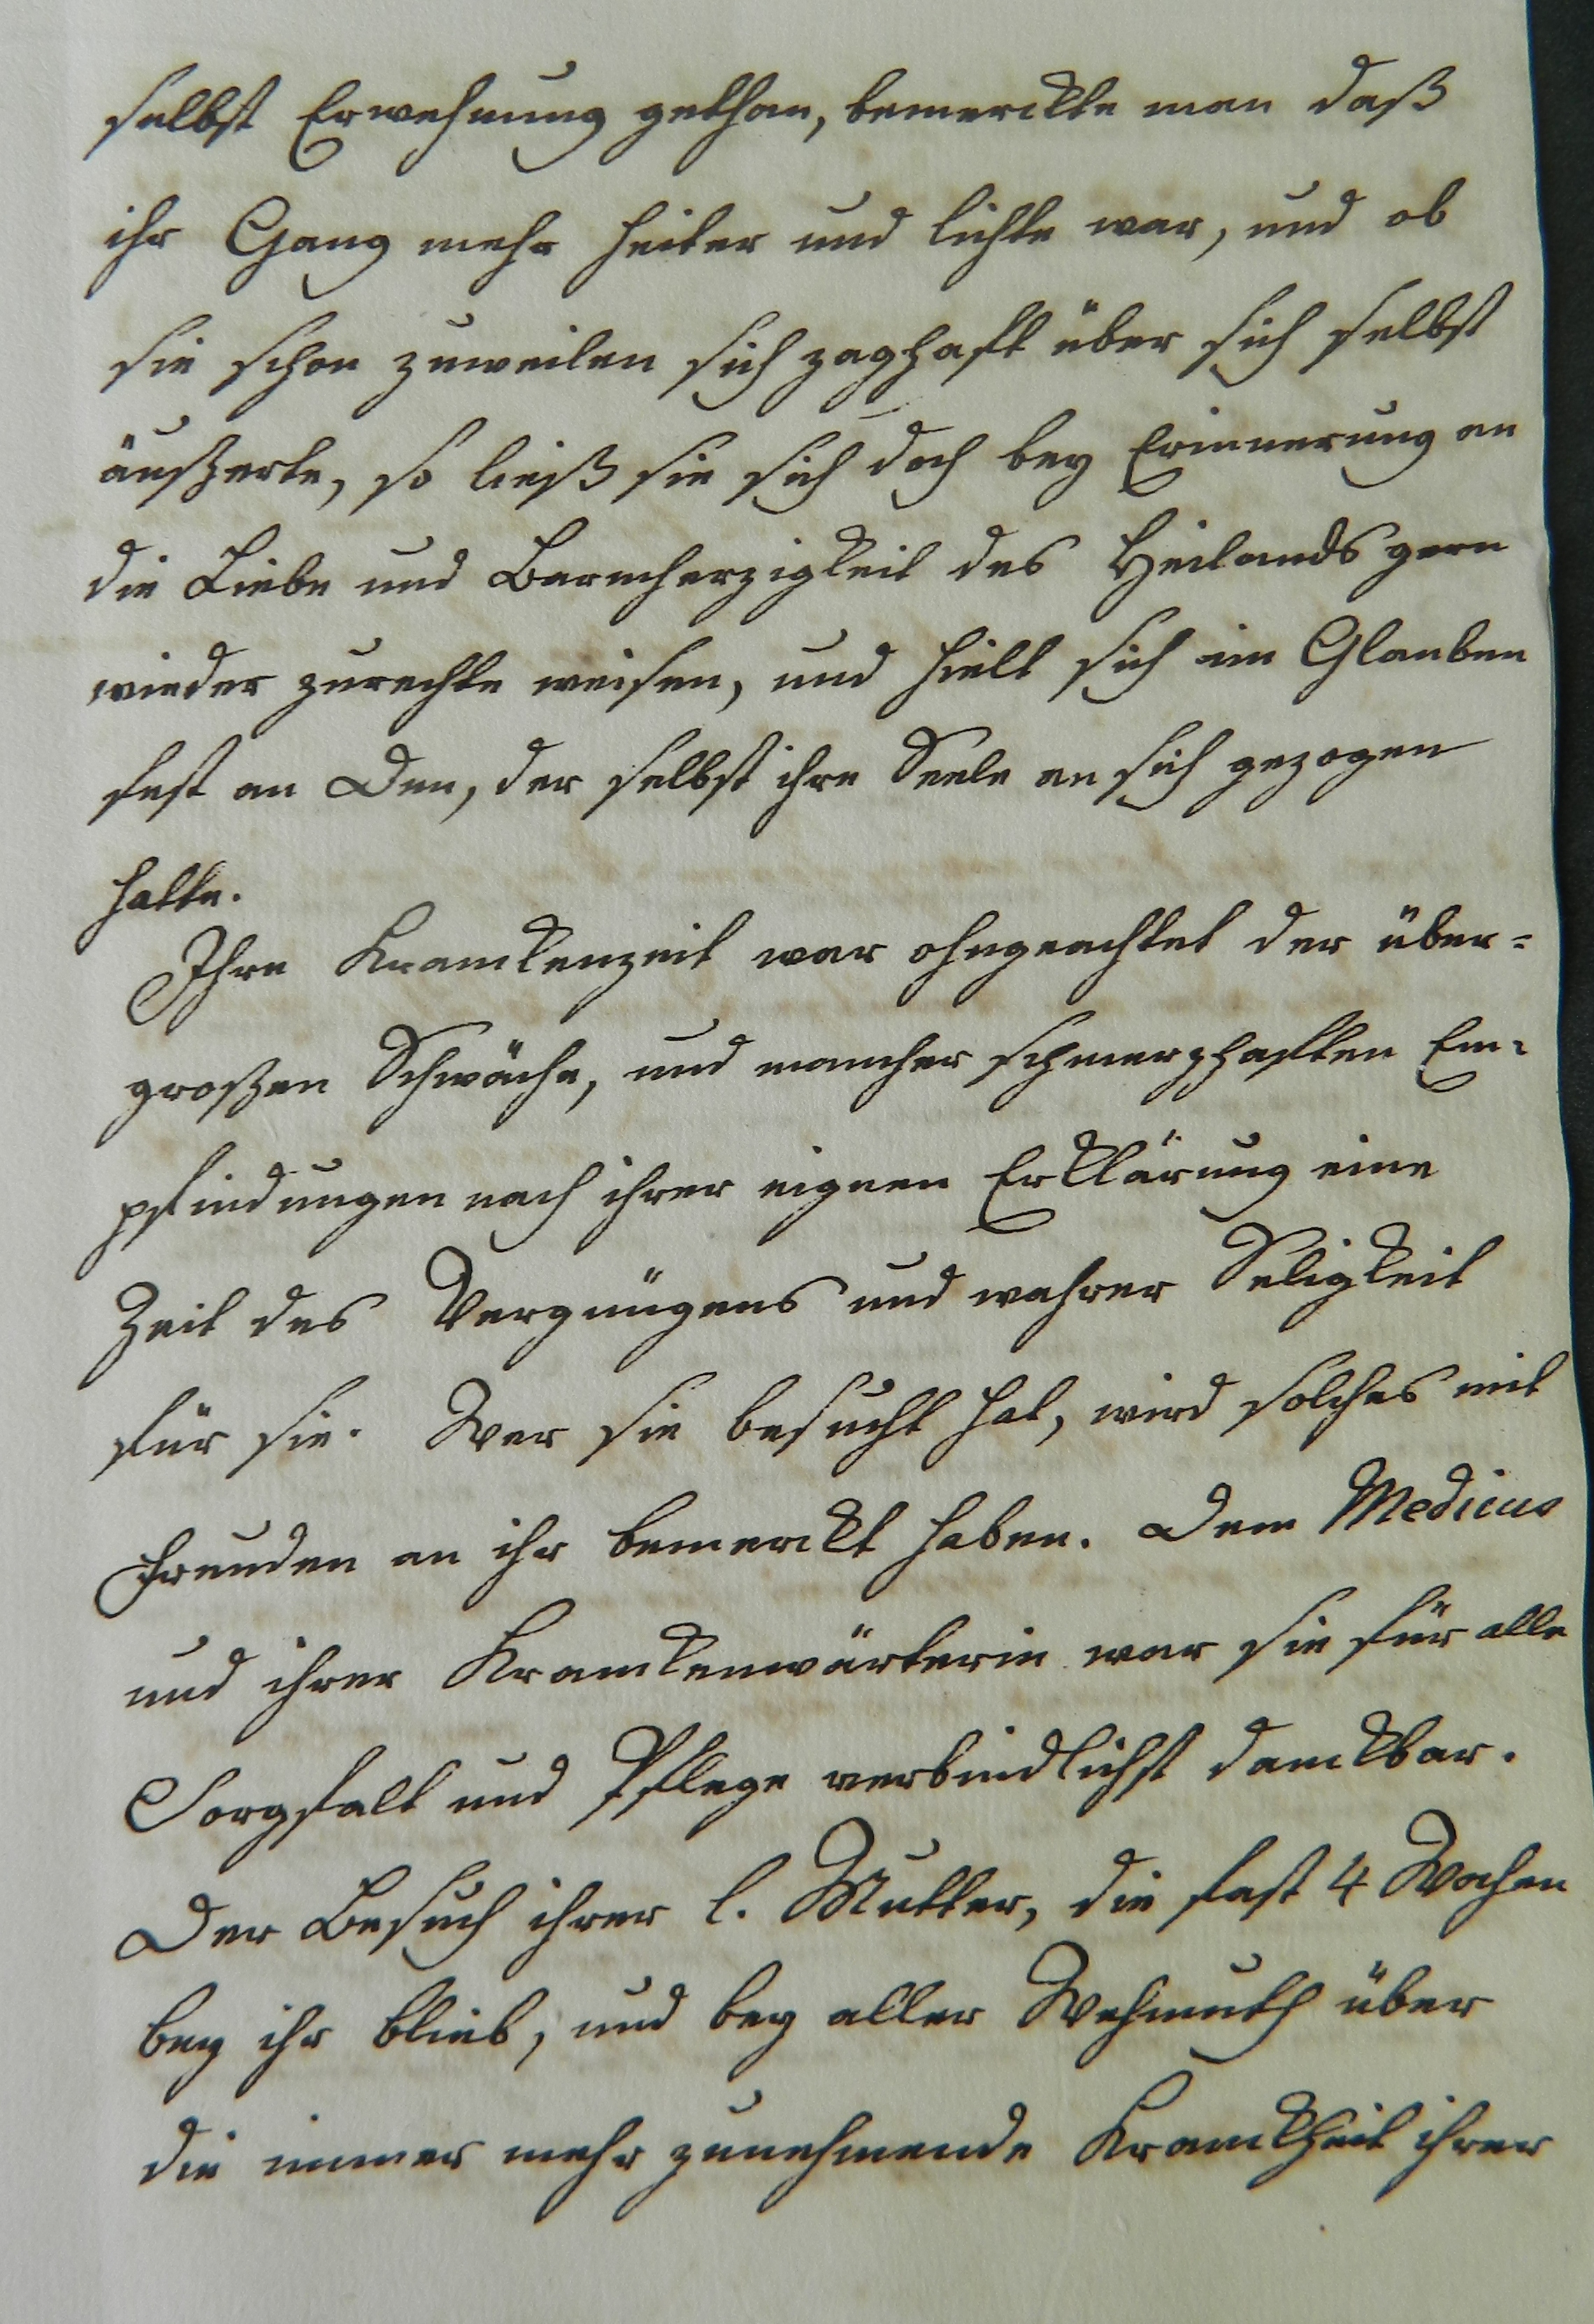 selbst Erwehnung gethan, bemerckte man daß
ihr Gang mehr heiter und lichte war, und ob
sie schon zuweilen sich zaghaft über sich selbst
äußerte, so ließ sie sich doch bey Erinnerung an
die Liebe und Barmherzigkeit des Heilands gern
wieder zurechte weisen, und hielt sich im Glauben
fest an Den, der selbst ihre Seele an sich gezogen
hatte.
Ihre Kranckenzeit war ohngeachtet der über-
großen Schwäche, und mancher schmerzhaften Em-
pfindungen nach ihrer eignen Erklärung eine
Zeit des Vergnügens und wahrer Seligkeit
für sie. Wer sie besucht hat, wird solches mit
Freuden an ihr bemerckt haben. Dem Medicus
und ihrer Kranckenwärterin war sie für alle
Sorgfalt und Pflege verbindlichst danckbar.
Der Besuch ihrer l. Mutter, die fast 4 Wochen
bey ihr blieb, und bey aller Wehmuth über
die immer mehr zunehmende Kranckheit ihrer